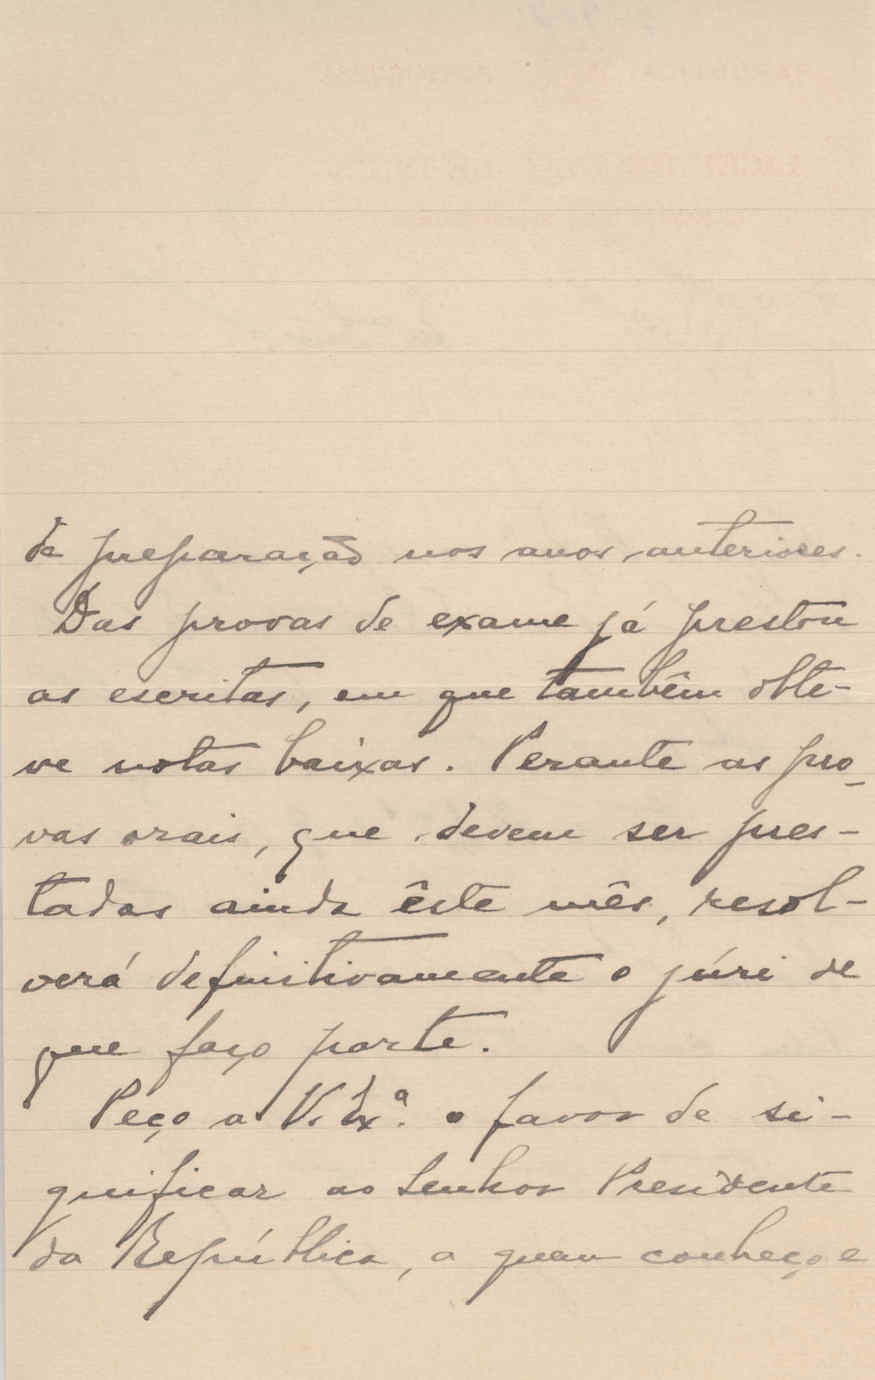 da preparação nos anos anteriores.
Das provas de exame já prestou
as escritas, em que tambêm obte-
ve notas baixas. Perante as pro-
vas orais, que devem ser pres-
tadas ainda êste mês, resol-
verá definitivamente o júri de
que faço parte.
Peço a V. Exª. o favor de si-
gnificar ao Senhor Presidente
da República, a quem conheço e